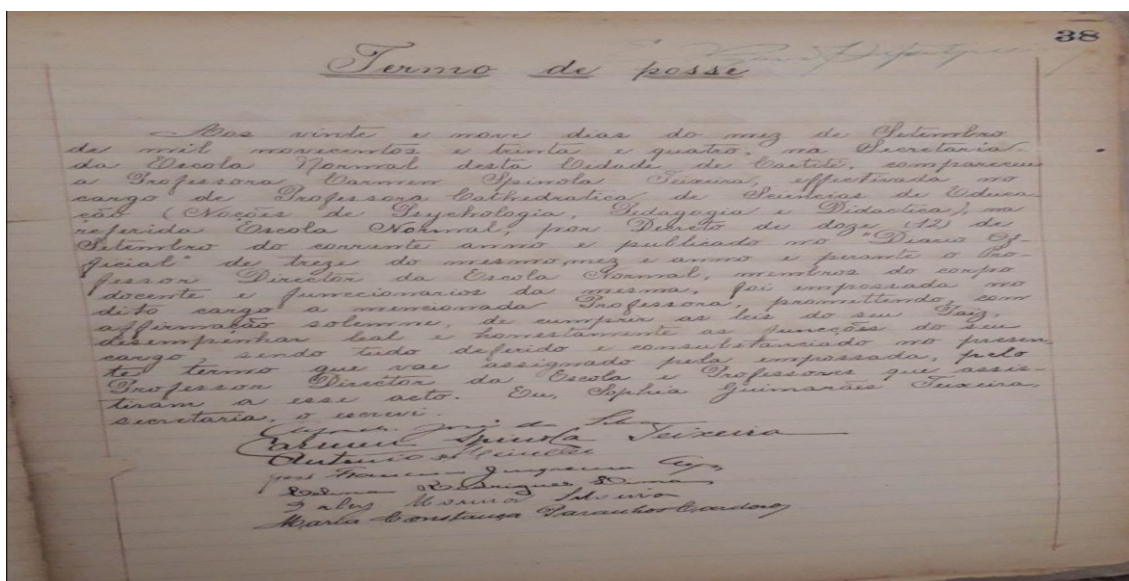 38
Termo de posse
Aos vinte e nove dias do mez de Setembro
de mil novecentos e trinta e quatro, na Secretaria
da Escola Normal desta Cidade de Caetité, compareceu
a Professora Carmen Spinola Teixeira, effectivada no
cargo de Professora Cathedratica de Sciencias de Educa-
ção (Noções de Psychologia, Pedagogia e Didactica), na
referida Escola Normal, por Decreto de doze (12) de
Setembro do corrente anno e publicado no "Diario Of-
ficial" de treze do mesmo mez e anno e perante o Pro-
fessor Director da Escola Normal, membros do corpo
docente e funccionarios da mesma, foi empossada no
dito cargo a mencionada Professora, promettendo, com
affirmação solemne, de cumprir as leis do seu Paiz,
desempenhar leal e honestamente as funcções do seu
cargo, sendo tudo deferido e consubstanciado no presen-
te termo que vae assignado pela empossada, pelo
Professor Director da Escola e Professores que assis-
tiram a esse acto. Eu, Sophia Guimarães Teixeira,
secretaria, o escrevi.
José da
Carmen Spinola Teixeira
Antonio
Rodrigues
Marina Silveira
Maria Constança Paranhos Cardoso